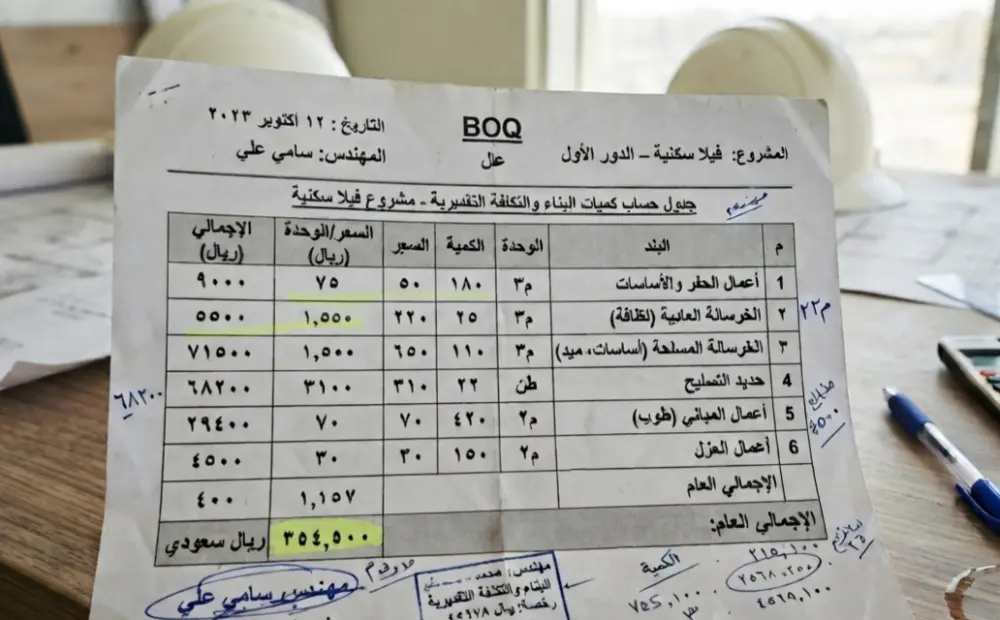 BOQ
التاريخ: ١٢ أكتوبر ٢٠٢٣
المشروع: فيلا سكنية – الدور الأول
المهندس: سامي علي
جدول حساب كميات البناء والتكلفة التقديرية - مشروع فيلا سكنية
م البند الوحدة الكمية السعر السعر/الوحدة (ريال) الإجمالي (ريال)
1 أعمال الحفر والأساسات م٣ ١٨٠ ٥٠ ٧٥ ٩٠٠٠
٢ الخرسالة العادية (لظافة) م٣ ٢٥ ٢٢٠ ١,٥٥٠ ٥٥٠٠
٣ الخرسالة المسلحة (أساسات، ميد) م٣ ١١٠ ٦٥٠ ١,٥٠٠ ٧١٥٠٠
4 حديد التصليح طن ٢٢ ٣١٠ ٣١٠٠ ٦٨٢٠٠
5 أعمال المباني (طوب) م٢ ٤٢٠ ٧٠ ٧٠ ٢٩٤٠٠
6 أعمال العزل م٢ ١٥٠ ٣٠ ٣٠ ٤٥٠٠
الإجمالي العام ١,١٥٧ ٤٠٠
الإجمالي العام: ٣٥٤,٥٠٠ ريال سعودي
م٢٢
٦٨٢٠٠
مهندس سامي علي
البناء والتكلفة التقديرية
الكمية
٧٥٥,١٠٠
٢١٥,١٠٠
٤٥٦٩,١٠٠